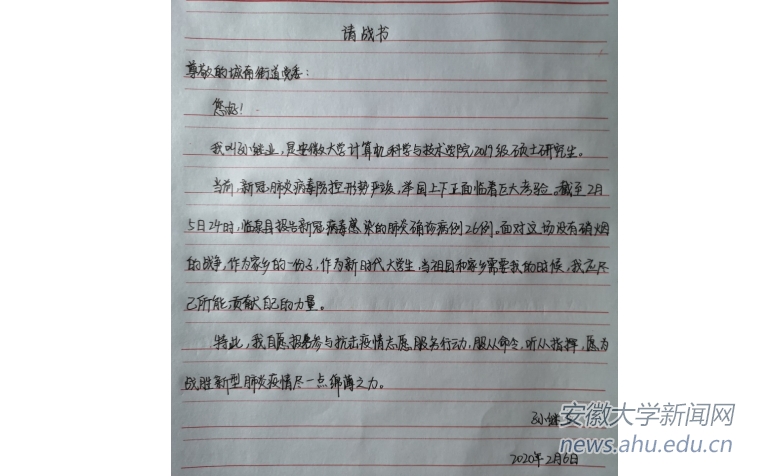 请战书
尊敬的城南街道党委：
您好！
我叫孙继业，是安徽大学计算机科学与技术学院2019级硕士研究生。
当前，新冠肺炎病毒防控形势严峻，举国上下正面临着巨大考验。截至2月
5日24时，临泉县报告新冠病毒感染的肺炎确诊病例26例。面对这场没有硝烟
的战争，作为家乡的一份子，作为新时代大学生，当祖国和家乡需要我的时候，我应尽
己所能贡献自己的力量。
特此，我自愿报名参与抗击疫情志愿服务行动，服从命令，听从指挥，愿为
战胜新型肺炎疫情尽一点绵薄之力。
孙继
2020年2月6日
安徽大学新闻网
news.ahu.edu.cn